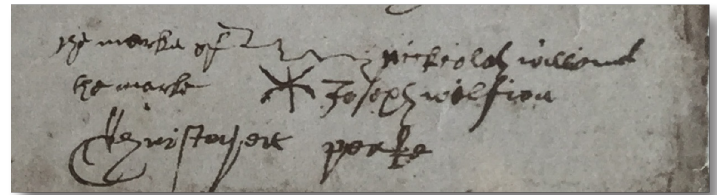 the marke of nickolas williams
the marke Joseph wilson
Christopher parke